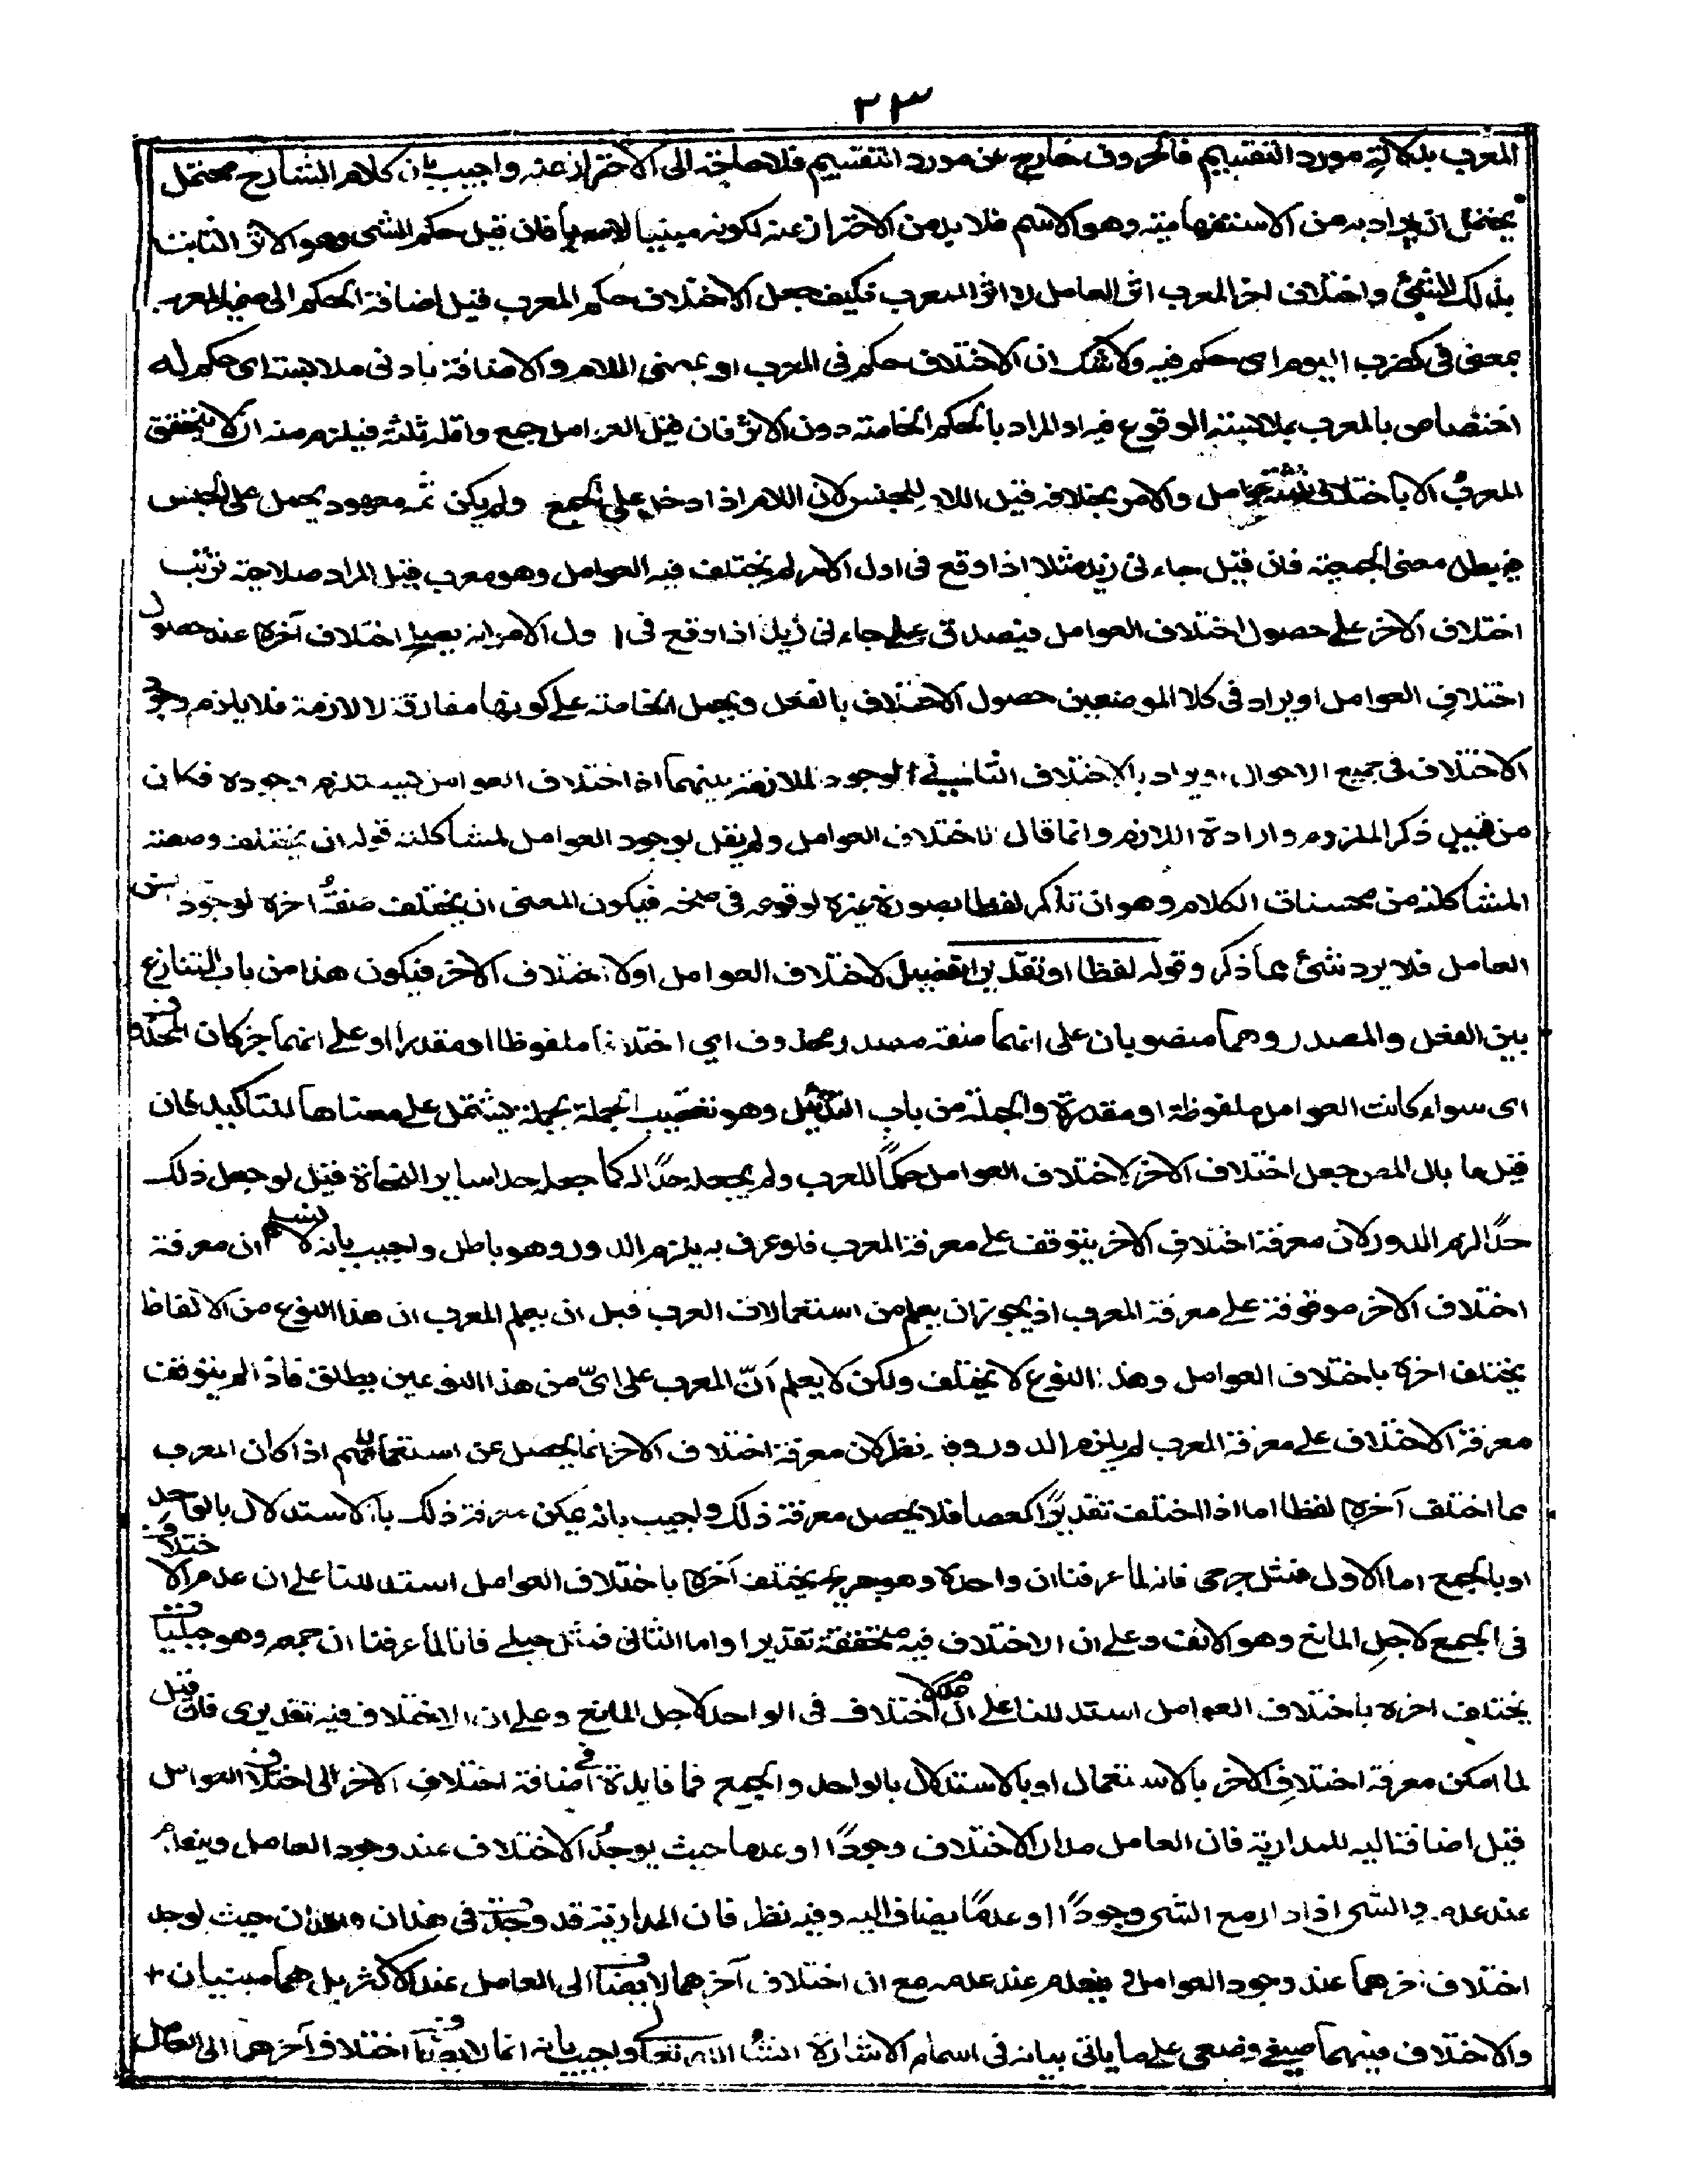 ٢٣
المعرب بدلالة مورد التقسيم فالحروف خارج عن مورد التقسيم فلا حاجة الى الاحتراز عنه واجيب بان كلام الشارح محتمل
يحتمل ان يراد به من الاستفهامية وهو الاسم فلا بد من الاحتراز عنه لكونه مبنيا لا معربا فان قيل حكم الشئ وهو الاثر الثابت
بذلك الشئ واختلاف اخر المعرب اثر العامل لا اثر المعرب فكيف جعل الاختلاف حكم المعرب قيل اضافة الحكم الى ضمير المعرب
بمعنى فى كضرب اليوم اى حكم فيه ولا شك ان الاختلاف حكم فى المعرب او بمعنى اللام والاضافة بادنى ملابسة اى حكم له
اختصاص بالمعرب بملابسة الوقوع فيه او المراد بالحكم الخاصة دون الاثر فان قيل العوامل جمع واقله ثلثة فيلزم منه ان لا يتحقق
المعرب الا باختلاف ثلثة عوامل والامر بخلافه قيل اللام للجنس لان اللام اذا دخل على الجمع ولم يكن ثمه معهود يحمل على الجنس
فيبطل معنى الجمعية فان قيل جاءنى زيد مثلا اذا وقع فى اول الامر لم يختلف فيه العوامل وهو معرب قيل المراد صلاحية ترتب
اختلاف الاخر على حصول اختلاف العوامل فيصدق على جاءنى زيد اذا وقع فى اول الامر انه يصلح اختلاف آخره عند حصول
اختلاف العوامل او يراد فى كلا الموضعين حصول الاختلاف بالفعل ويحمل الخاصة على كونها مفارقة لا لازمة فلا يلزم وجود
الاختلاف فى جميع الاحوال او يراد بالاختلاف الثانى الوجود لملازمة بينهما اذ اختلاف العوامل يستلزم وجوده فكان
من قبيل ذكر الملزوم وارادة اللازم وانما قال لاختلاف العوامل ولم يقل لوجود العوامل لمشاكلته قوله ان يختلف وصنعة
المشاكلة من محسنات الكلام وهو ان تذكر لفظا بصورة غيره لوقوعه فى صحبته فيكون المعنى ان يختلف صفة اخره لوجود جنس
العامل فلا يرد شئ مما ذكر وقوله لفظا او تقديرا تفصيل لاختلاف العوامل او لاختلاف الاخر فيكون هذا من باب التنازع
بين الفعل والمصدر وهما منصوبان على انهما صفة مصدر محذوف اى اختلافا ملفوظا او مقدرا او على انهما خبر كان المحذوف
اى سواء كانت العوامل ملفوظة او مقدرة والجملة من باب التذييل وهو تعقيب الجملة بجملة يشتمل على معناها للتاكيد فان
قيل ما بال المص جعل اختلاف الاخر لاختلاف العوامل حكمًا للمعرب ولم يجعله حدًا له كما جعله حدا ساير النحاة قيل لو جعل ذلك
حدًا لزم الدور لان معرفة اختلاف الاخر يتوقف على معرفة المعرب فلو عرف به يلزم الدور وهو باطل واجيب بانه لا نسلم ان معرفة
اختلاف الاخر موقوفة على معرفة المعرب اذ يجوز ان يعلم من استعمالات العرب قبل ان يعلم المعرب ان هذا النوع من الالفاظ
يختلف اخره باختلاف العوامل وهذا النوع لا يختلف ولكن لا يعلم انّ المعرب على اىّ من هذا النوعين يطلق فاذا لم يتوقف
معرفة الاختلاف على معرفة المعرب لم يلزم الدور وفيه نظر لان معرفة اختلاف الاخر انما يحصل عن استعمالهم اذا كان المعرب
مما اختلف آخره لفظا اما اذا اختلف تقديرًا كعصا فلا يحصل معرفة ذلك واجيب بانه يمكن معرفة ذلك بالاستدلال بالواحد
او بالجمع اما الاول فمثل جرحى فانه لما عرفنا ان واحده وهو جريح يختلف آخره باختلاف العوامل استدللنا على ان عدم الاختلاف
فى الجمع لاجل المانع وهو الالف وعلى ان الاختلاف فيه متحققة تقديرا واما الثانى فمثل حبلى فانا لما عرفنا ان جمعه وهو حبليات
يختلف اخره باختلاف العوامل استدللنا على ان عدم الاختلاف فى الواحد لاجل المانع وعلى ان الاختلاف فيه تقديرى فان قيل
لما امكن معرفة اختلاف الاخر بالاستعمال او بالاستدلال بالواحد والجمع فما فايدة فى اضافة اختلاف الاخر الى اختلاف العوامل
قيل اضافتنا اليه للمدارية فان العامل مدار الاختلاف وجودًا او عدما حيث يوجد الاختلاف عند وجود العامل وينعدم
عند عدمه والشئ اذا دار مع الشئ وجودًا او عدمًا يضاف اليه وفيه نظر فان المدارية قد وجدت فى هذان وهذين حيث يوجد
اختلاف آخرهما عند وجود العوامل وينعدم عند عدمه مع ان اختلاف آخرهما لا يضاف الى العامل عند الاكثر بل هما مبنيان +
والاختلاف فيهما صيغى وضعى على ما ياتى بيانه فى اسماء الاشارة انشاء الله تعالى واجيب بانه انما لا يضاف اختلاف آخرهما الى العامل